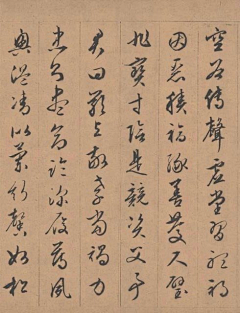 空谷傳聲虛堂習聽禍
因惡積福緣善慶尺璧
非寶寸陰是競資父事
君曰嚴與敬孝當竭力
忠則盡命臨深履薄夙
興溫凊似蘭斯馨如松